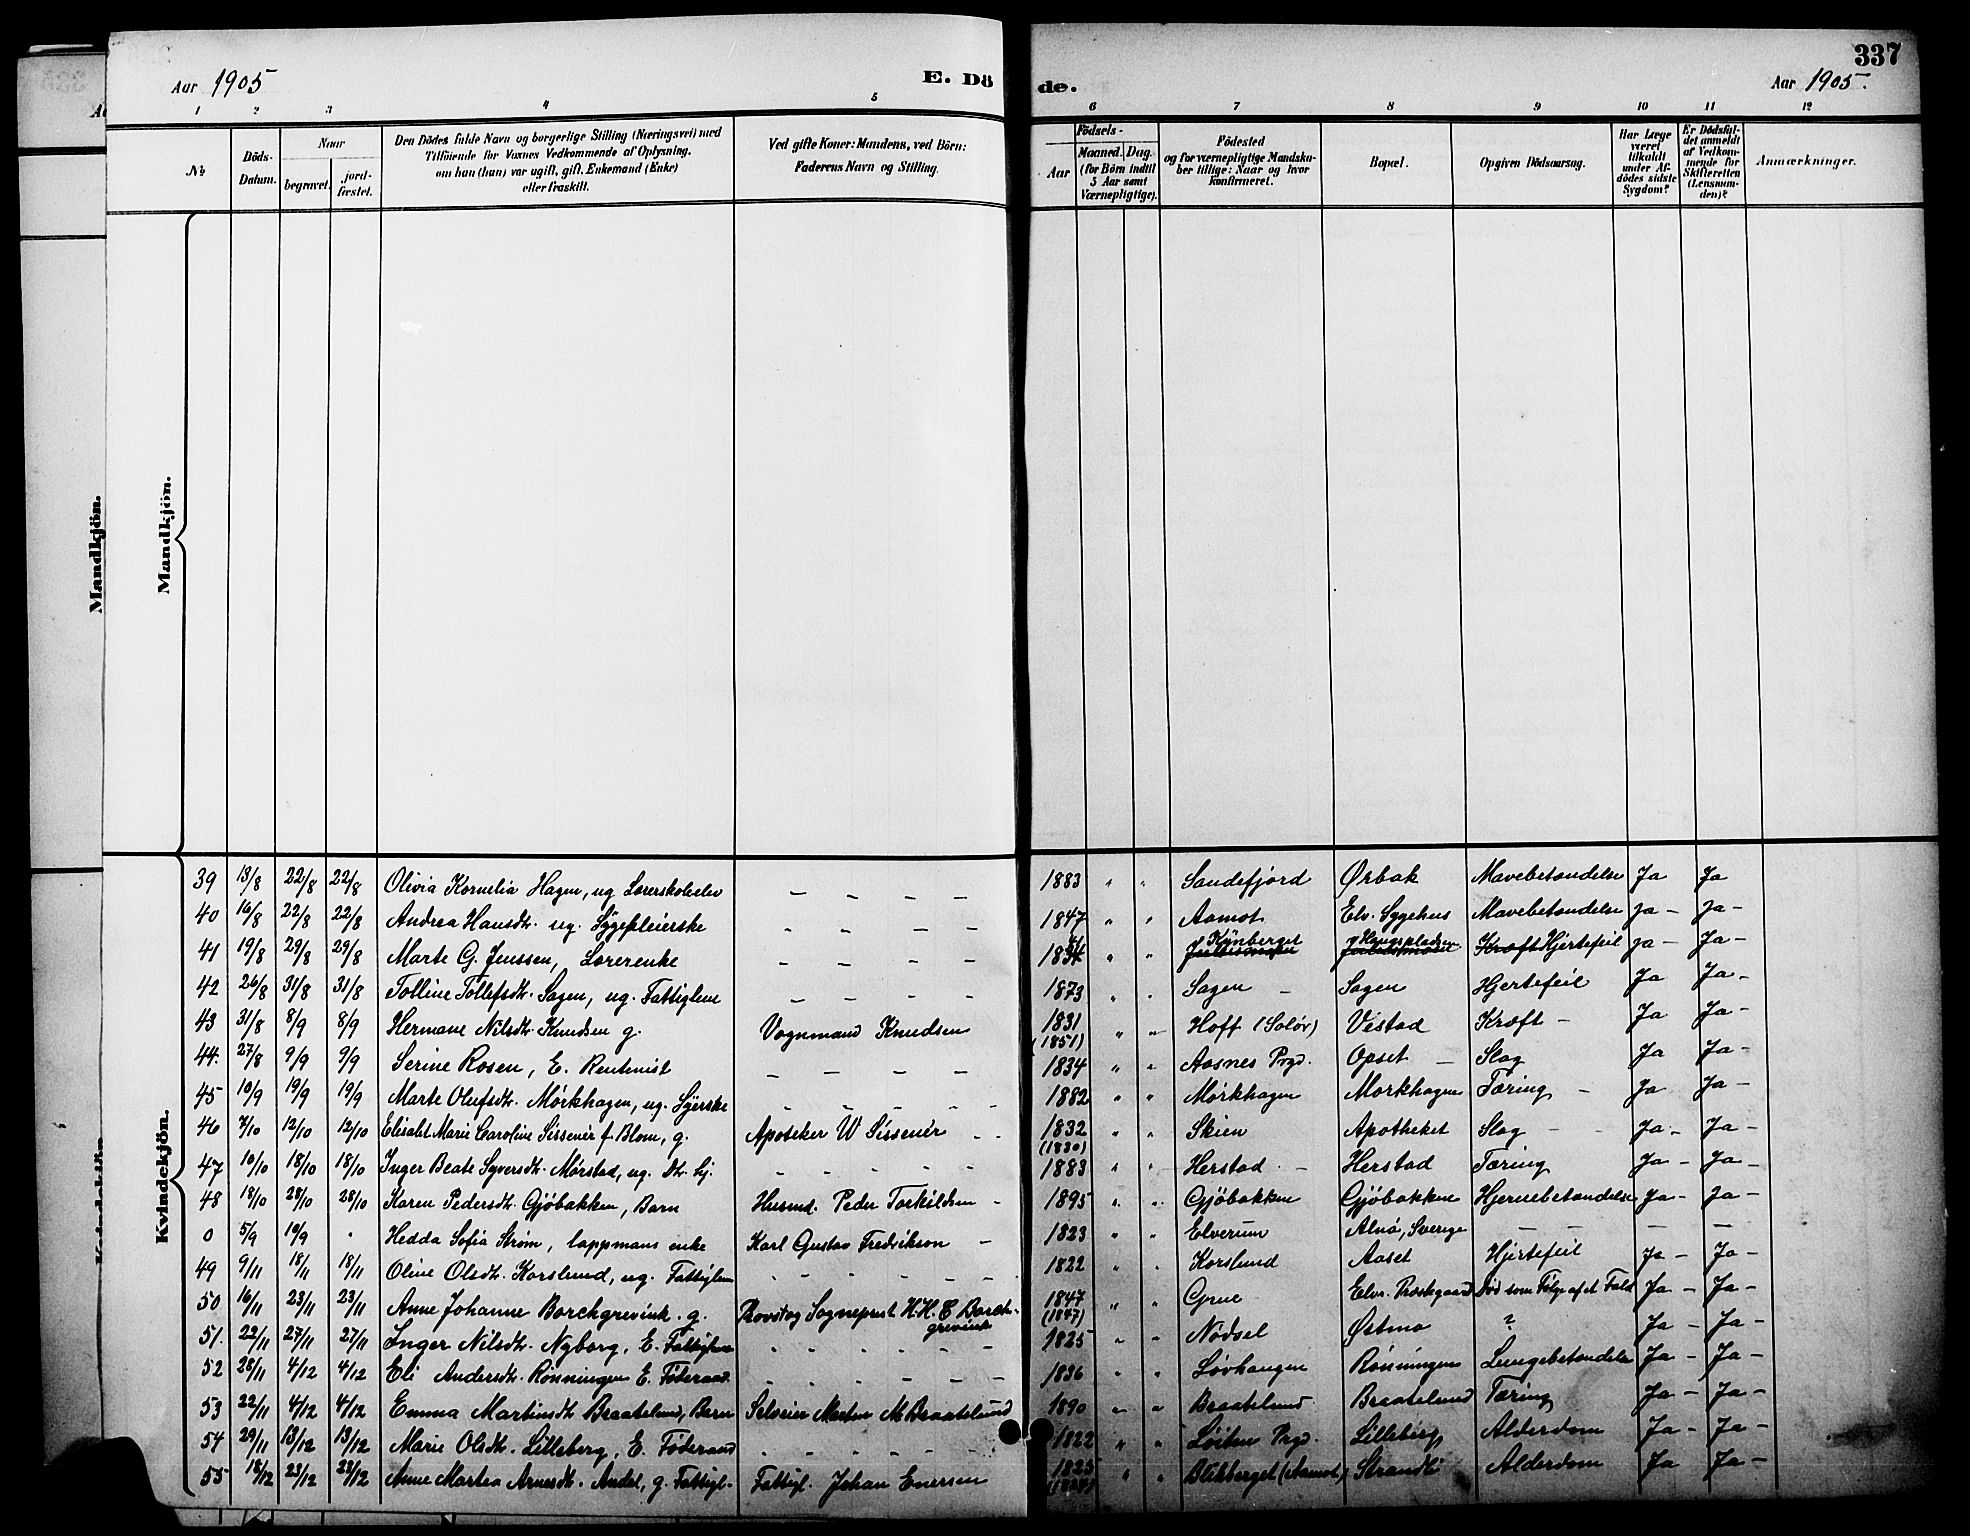 337
Aar 1905
E. Dö
de.
Aar 1905.
1 2 3 4 5 6 7 8 9 10 11 12
No
Döds-Datum.
Naar
begravet.
jord-fæstet.
Den Dödes fulde Navn og borgerlige Stilling (Næringsvei) med
Tilföiende for Voxnes Vedkommende af Oplysning,
om han (hun) var ugift, gift, Enkemand (Enke)
eller fraskilt.
Ved gifte Koner: Mandens, ved Börn:
Faderens Navn og Stilling.
Födsels-
Aar
Maaned. Dag.
(for Börn indtil
5 Aar samt
Værnepligtige).
Födested
og for værnepligtige Mandska-
ber tillige: Naar og hvor
konfirmeret.
Bopæl.
Opgiven Dödsaarsag.
Har Læge
været
tilkaldt
under Af-
dödes sidste
Sygdom?
Er Dödsfal-
det anmeldt
af Vedkom-
mende for
Skifteretten
(Lensman-
den)?
Anmærkninger.
Mandkjön.
Mandkjön.
Kvindekjön.
39 13/8 22/8 22/8 Olivia Kornelia Hagen, ug Lærerskoleelev — — — 1883 " " Sandefjord Ørbak Mavebetændelse Ja Ja
40 16/8 22/8 22/8 Andrea Hansdtr. ug. Sygepleierske - - - - 1847 " " Aamot Elv. Sygehus Mavebetændelse Ja - Ja -
41 19/8 29/8 29/8 Marte G. Jenssen, Lærerenke - - - - " " Kynberget Haugspladsen Kræft Hjertefeil Ja - Ja -
42 26/8 31/8 31/8 Tolline Tollefsdtr. Sagen, ug. Fattiglem - - - - 1873 " " Sagen - Sagen Hjertefeil Ja Ja -
43 31/8 8/9 8/9 Hermane Nilsdtr. Knudsen g. Vognmand Knudsen 1831 (1851) " " Hoff (Solør) Vestad Kræft - Ja Ja -
44. 27/8 9/9 9/9 Serine Rosen, E. Rentenist - - - - 1834 " " Aasnes Prgd. Opset - Slag Ja Ja -
45 10/9 19/9 19/9 Marte Olufsdtr. Mørkhagen, ug. Syerske - - - - 1882 " " Mørkhagen Mørkhagen Tæring - Ja Ja -
46 7/10 12/10 12/10 Elisabet Marie Caroline Sissenér f. Blom, g. Apoteker W Sissenér - - 1832 (1830) " " Skien Apotheket Slag - - Ja - Ja -
47 10/10 18/10 18/10 Inger Beate Syversdtr. Mørstad, ug. - - - - 1883 " " Herstad - Herstad Tæring Ja - Ja -
48 18/10 28/10 28/10 Karen Pedersdtr. Gjöbakken, Barn Husmd. Peder Torkildsen - 1895 " " Gjöbakken Gjöbakken Hjernebetændelse Ja - Ja -
0 5/9 10/9 " Hedda Sofia Strøm, lappmans enke Karl Gustav Fredrikson - 1823 " " Elverum Alnö, Sverige — — — —
49 9/11 18/11 18/11 Oline Olsdtr. Korslund, ug. Fattiglem - - - - 1822 " " Korslund Aaset Hjertefeil Ja - Ja -
50 16/11 23/11 23/11 Anne Johanne Borchgrevink. g. Provst og Sogneprest H. H. C Borch-
grevink 1847 (1847) " " Grue Elv. Prestegaard Død som Følge af et Fald Ja - Ja -
51. 22/11 27/11 27/11 Inger Nilsdtr. Nyborg, E. Fattiglem - - - - 1825 " " Nödsel Østmo ? Ja - Ja -
52 28/11 4/12 4/12 Eli Andersdtr. Rönningen E. Føderaad - - - - 1836 " " Løvhaugen Rönningen Lungebetændelse Ja - Ja -
53 22/11 4/12 4/12 Emma Martinsdtr Braatelund, Barn Selveier Martin M. Braatelund 1890 " " Braatelund Braatelund Tæring Ja - Ja -
54 29/11 13/12 13/12 Marie Olsdtr. Lilleberg, E. Føderaad - - - - 1822 " " Løiten Prgd. Lilleberg Alderdom Ja - Ja -
55 18/12 23/12 23/12 Anne Martea Arnesdtr. Andet, g. Fattigl. Fattigl. Johan Enersen 1825 " " Blikberget (Aamot) Strandli Alderdom Ja Ja -